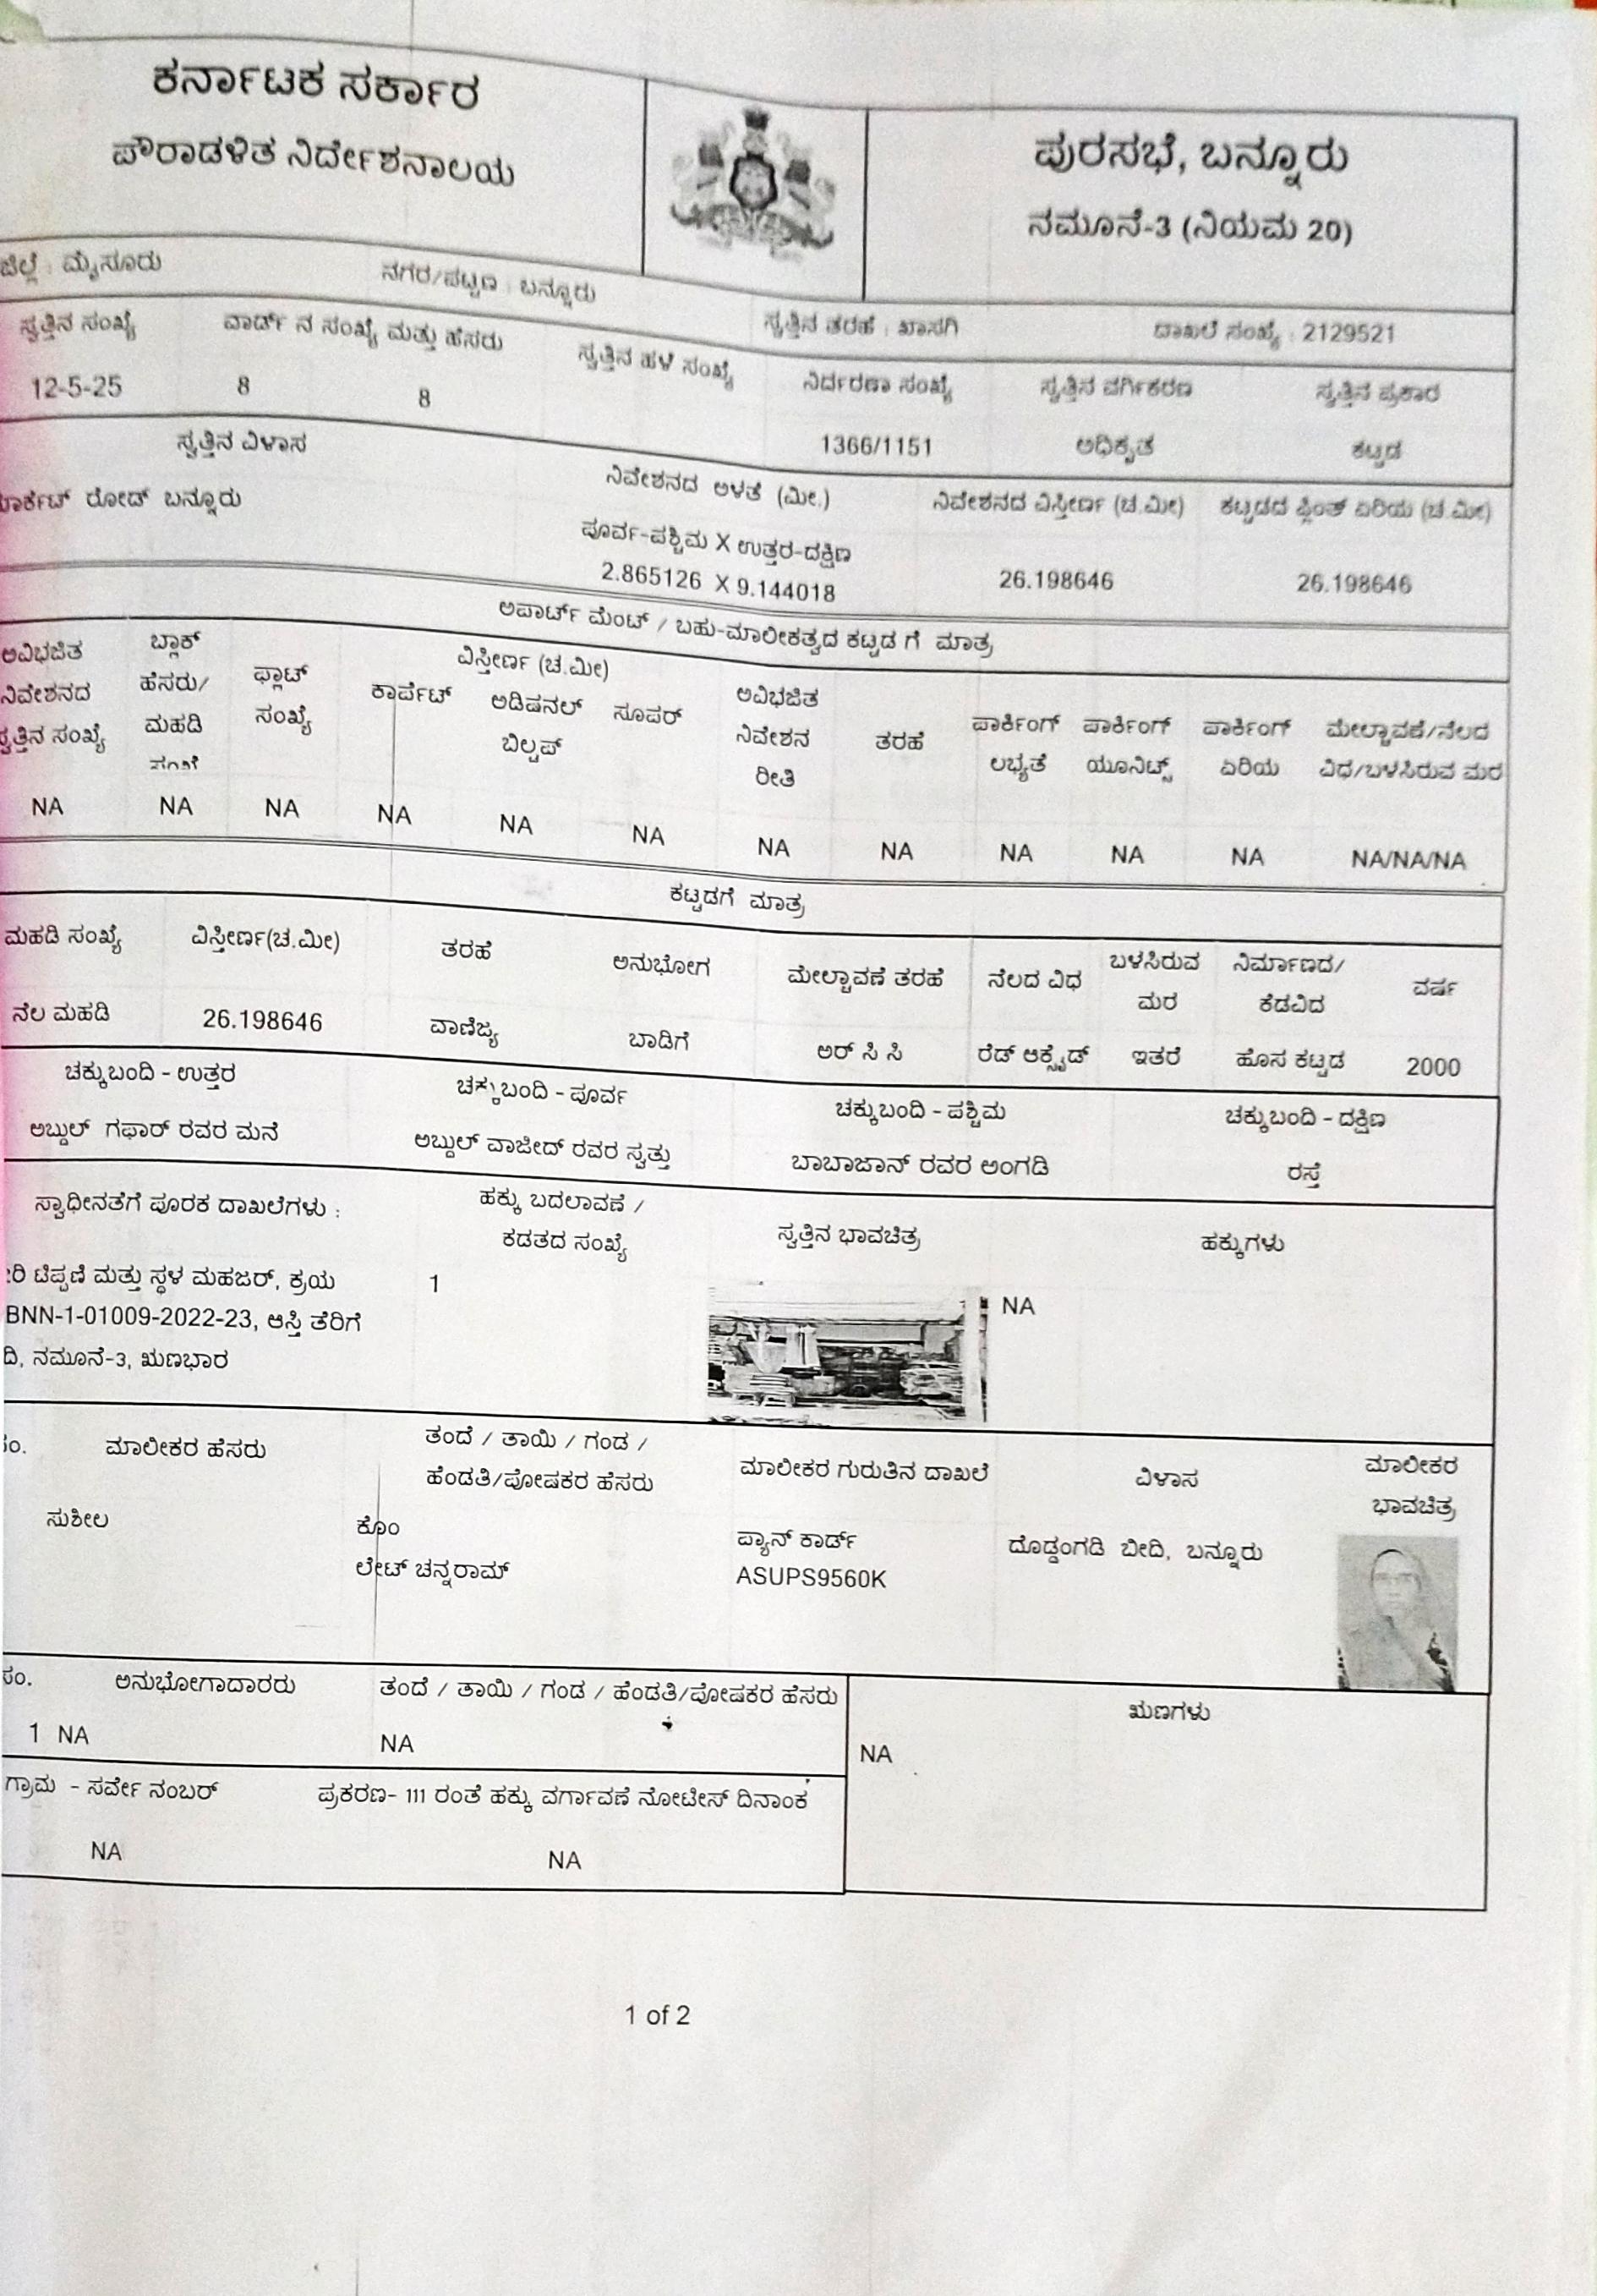 ಕರ್ನಾಟಕ ಸರ್ಕಾರ
ಪೌರಾಡಳಿತ ನಿರ್ದೇಶನಾಲಯ
ಪುರಸಭೆ, ಬನ್ನೂರು
ನಮೂನೆ-3 (ನಿಯಮ 20)
ಜಿಲ್ಲೆ : ಮೈಸೂರು ನಗರ/ಪಟ್ಟಣ : ಬನ್ನೂರು ಸ್ವತ್ತಿನ ತರಹೆ : ಖಾಸಗಿ ದಾಖಲೆ ಸಂಖ್ಯೆ : 2129521
ಸ್ವತ್ತಿನ ಸಂಖ್ಯೆ ವಾರ್ಡ್ ನ ಸಂಖ್ಯೆ ಮತ್ತು ಹೆಸರು ಸ್ವತ್ತಿನ ಹಳೆ ಸಂಖ್ಯೆ ನಿರ್ದರಣಾ ಸಂಖ್ಯೆ ಸ್ವತ್ತಿನ ವರ್ಗಿಕರಣ ಸ್ವತ್ತಿನ ಪ್ರಕಾರ
12-5-25 8 8 1366/1151 ಅಧಿಕೃತ ಕಟ್ಟಡ
ಸ್ವತ್ತಿನ ವಿಳಾಸ ನಿವೇಶನದ ಅಳತೆ (ಮೀ.) ನಿವೇಶನದ ವಿಸ್ತೀರ್ಣ (ಚ.ಮೀ) ಕಟ್ಟಡದ ಪ್ಲಿಂತ್ ಏರಿಯ (ಚ.ಮೀ)
ರೋಡ್ ಬನ್ನೂರು ಪೂರ್ವ-ಪಶ್ಚಿಮ X ಉತ್ತರ-ದಕ್ಷಿಣ
2.865126 X 9.144018 26.198646 26.198646
ಅಪಾರ್ಟ್ ಮೆಂಟ್ / ಬಹು-ಮಾಲೀಕತ್ವದ ಕಟ್ಟಡ ಗೆ ಮಾತ್ರ
ಅವಿಭಜಿತ ಬ್ಲಾಕ್ ಫ್ಲಾಟ್ ವಿಸ್ತೀರ್ಣ (ಚ.ಮೀ) ಅವಿಭಜಿತ
ನಿವೇಶನದ ಹೆಸರು/ ಸಂಖ್ಯೆ ಕಾರ್ಪೆಟ್ ಅಡಿಷನಲ್ ಸೂಪರ್ ನಿವೇಶನ ತರಹೆ ಪಾರ್ಕಿಂಗ್ ಪಾರ್ಕಿಂಗ್ ಪಾರ್ಕಿಂಗ್ ಮೇಲ್ಚಾವಣೆ/ನೆಲದ
ಸ್ವತ್ತಿನ ಸಂಖ್ಯೆ ಮಹಡಿ ಬಿಲ್ಟಪ್ ರೀತಿ ಲಭ್ಯತೆ ಯೂನಿಟ್ಸ್ ಏರಿಯ ವಿಧ/ಬಳಸಿರುವ ಮರ
NA NA NA NA NA NA NA NA NA NA NA NA/NA/NA
ಕಟ್ಟಡಗೆ ಮಾತ್ರ
ಮಹಡಿ ಸಂಖ್ಯೆ ವಿಸ್ತೀರ್ಣ(ಚ.ಮೀ) ತರಹೆ ಅನುಭೋಗ ಮೇಲ್ಚಾವಣೆ ತರಹೆ ನೆಲದ ವಿಧ ಬಳಸಿರುವ ನಿರ್ಮಾಣದ/ ವರ್ಷ
ಮರ ಕೆಡವಿದ
ನೆಲ ಮಹಡಿ 26.198646 ವಾಣಿಜ್ಯ ಬಾಡಿಗೆ ಅರ್ ಸಿ ಸಿ ರೆಡ್ ಆಕ್ಸೈಡ್ ಇತರೆ ಹೊಸ ಕಟ್ಟಡ 2000
ಚಕ್ಕುಬಂದಿ - ಉತ್ತರ ಚಕ್ಕುಬಂದಿ - ಪೂರ್ವ ಚಕ್ಕುಬಂದಿ - ಪಶ್ಚಿಮ ಚಕ್ಕುಬಂದಿ - ದಕ್ಷಿಣ
ಅಬ್ದುಲ್ ಗಫಾರ್ ರವರ ಮನೆ ಅಬ್ದುಲ್ ವಾಜೀದ್ ರವರ ಸ್ವತ್ತು ಬಾಬಾಜಾನ್ ರವರ ಅಂಗಡಿ ರಸ್ತೆ
ಸ್ವಾಧೀನತೆಗೆ ಪೂರಕ ದಾಖಲೆಗಳು : ಹಕ್ಕು ಬದಲಾವಣೆ / ಸ್ವತ್ತಿನ ಭಾವಚಿತ್ರ ಹಕ್ಕುಗಳು
ಕಡತದ ಸಂಖ್ಯೆ
ಟಿಪ್ಪಣಿ ಮತ್ತು ಸ್ಥಳ ಮಹಜರ್, ಕ್ರಯ 1 NA
BNN-1-01009-2022-23, ಆಸ್ತಿ ತೆರಿಗೆ
ದಿ, ನಮೂನೆ-3, ಋಣಭಾರ
ಸಂ. ಮಾಲೀಕರ ಹೆಸರು ತಂದೆ / ತಾಯಿ / ಗಂಡ / ಮಾಲೀಕರ ಗುರುತಿನ ದಾಖಲೆ ವಿಳಾಸ ಮಾಲೀಕರ
ಹೆಂಡತಿ/ಪೋಷಕರ ಹೆಸರು ಭಾವಚಿತ್ರ
ಸುಶೀಲ ಕೊಂ ಪ್ಯಾನ್ ಕಾರ್ಡ್ ದೊಡ್ಡಂಗಡಿ ಬೀದಿ, ಬನ್ನೂರು
ಲೇಟ್ ಚನ್ನರಾಮ್ ASUPS9560K
ಸಂ. ಅನುಭೋಗಾದಾರರು ತಂದೆ / ತಾಯಿ / ಗಂಡ / ಹೆಂಡತಿ/ಪೋಷಕರ ಹೆಸರು ಋಣಗಳು
1 NA NA NA
ಗ್ರಾಮ - ಸರ್ವೇ ನಂಬರ್ ಪ್ರಕರಣ- 111 ರಂತೆ ಹಕ್ಕು ವರ್ಗಾವಣೆ ನೋಟೀಸ್ ದಿನಾಂಕ
NA NA
1 of 2